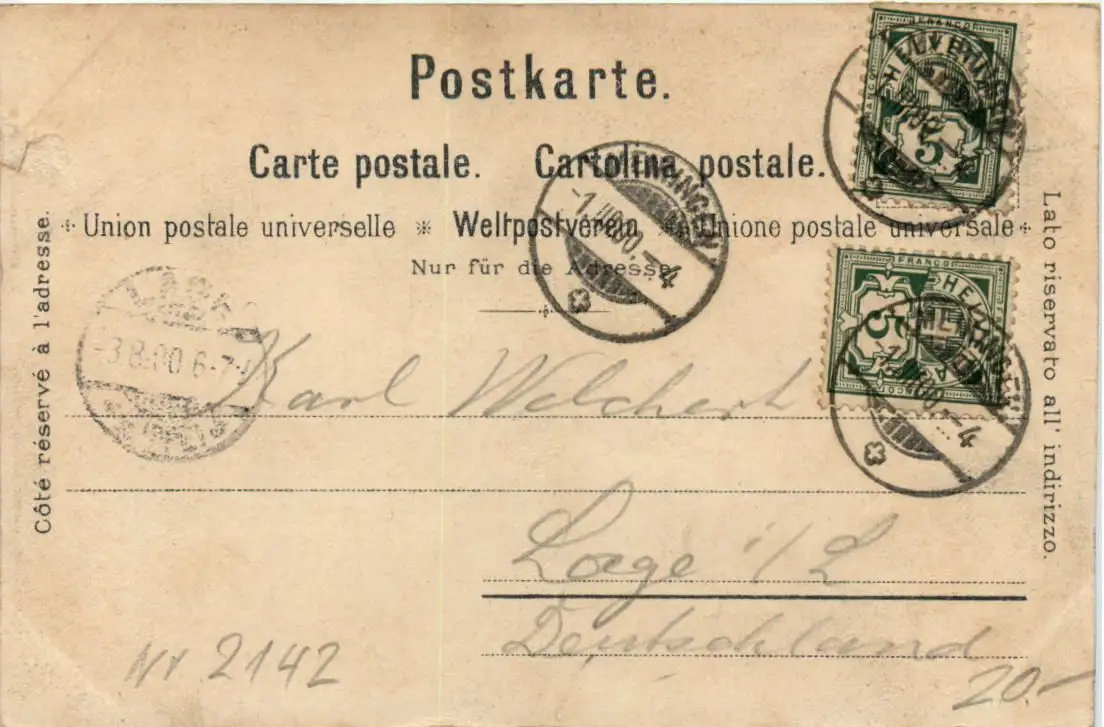 Postkarte.
Carte postale. Cartolina postale.
Union postale universelle * Weltpostverein * Unione postale universale
Nur für die Adresse.
Côté réservé à l'adresse.
Lato riservato all' indirizzo.
FRANCO
HELVETIA
5
FRANCO
HELVETIA
5
-3.8.00 6-7
Karl
Lage i/L
Deutschland
Nr 2142
20.-